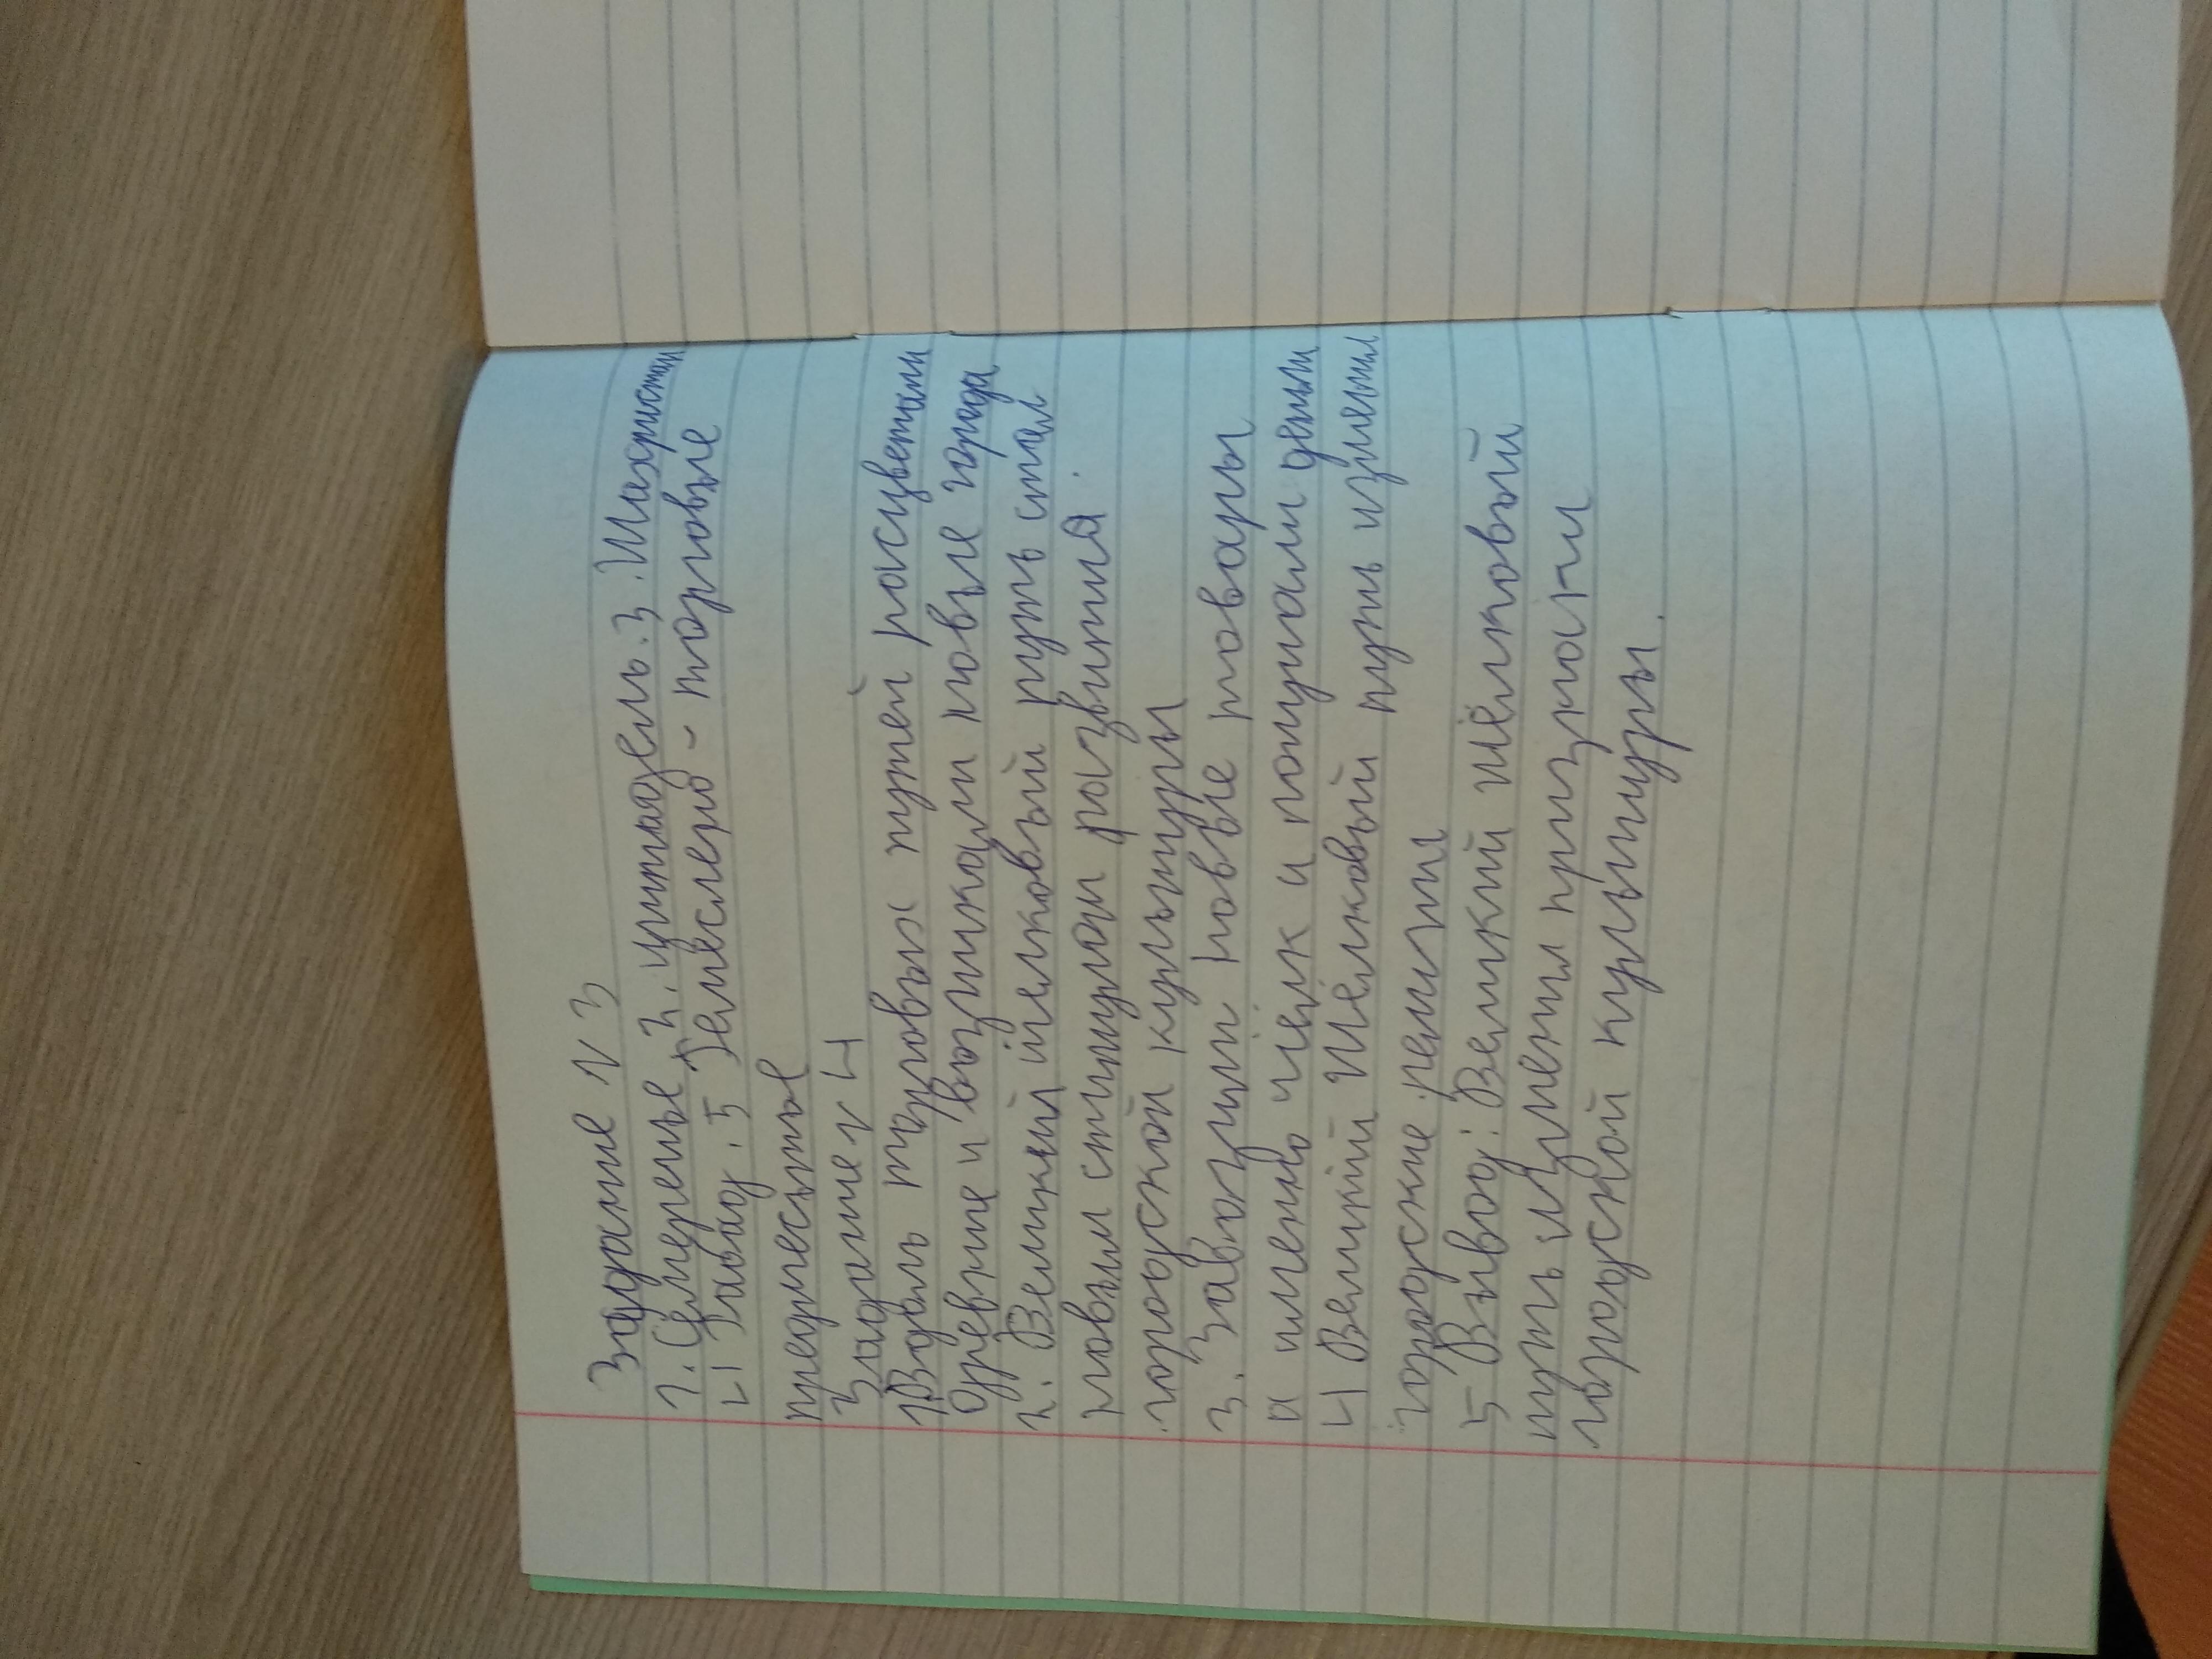 Задание N 3
1. Семеренье 2. цитадель. 3. Шахристан
4 Рабад. 5 Ремеслено - торговые
предместье
Задание N 4
1 Вдоль торговых путей расцветали
древние и возникали новые города
2. Великий шелковый путь стал
новым стимулом развития.
городской культуры
3. Завозили новые товары
а именно шёлк и получали деньги
4 Великий Шёлковый путь изменил
городские
5 Вывод: Великий шёлковый
путь изменил
городской культуры.